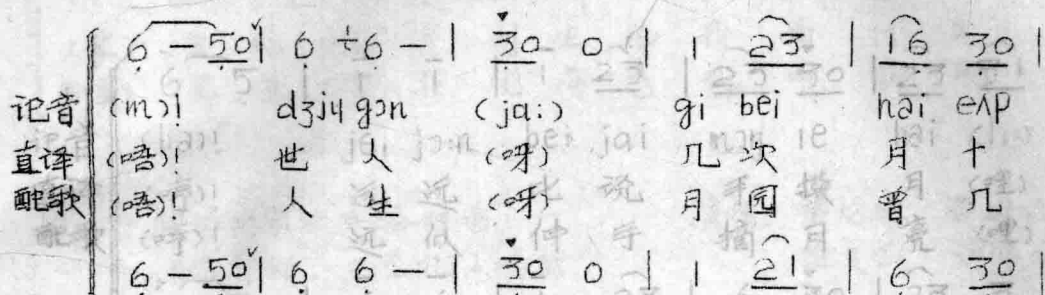 6 — 50 | 6 ÷6 — | 30 0 | 1 23 | 16 30 |
记音 (m)! dʒiɥ gɔn (ja:) gi bei hai eʌp
直译 (唔)! 世 人 (呀) 几 次 月 十
配歌 (唔)! 人 生 (呀) 月 园 曾 几
6 — 50 | 6 6 — | 30 0 | 1 21 | 6 30 |